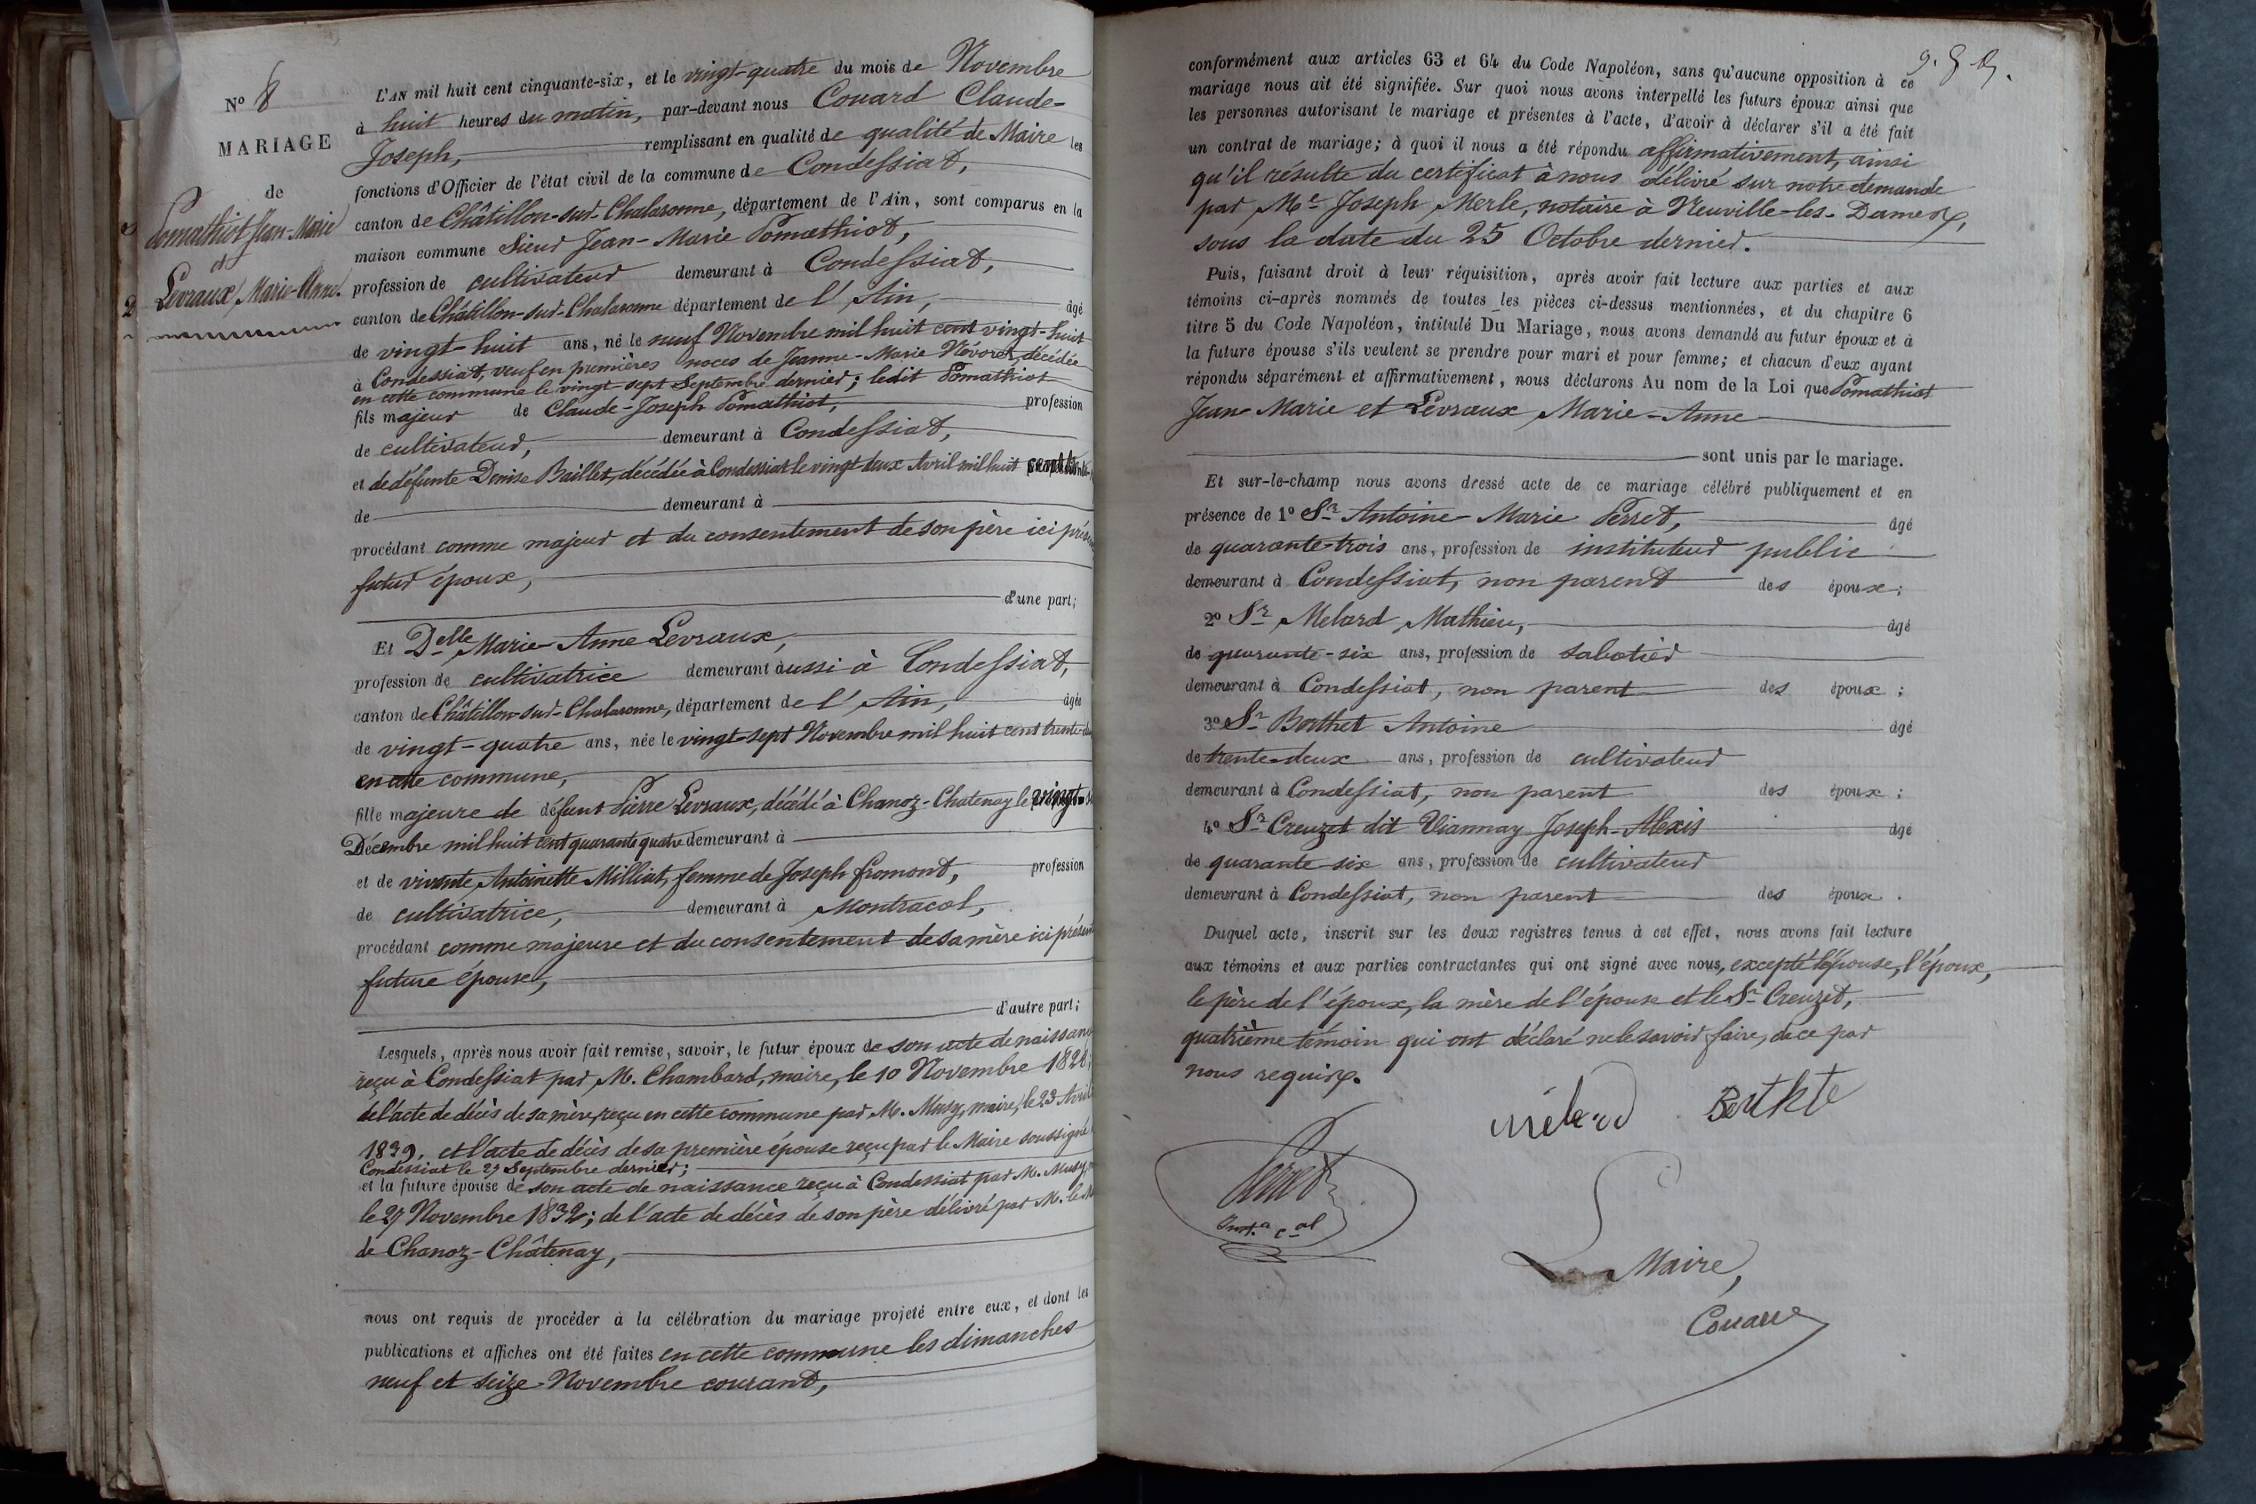 N° 8
MARIAGE
de
Pomathiot Jean-Marie
et
Levraux Marie-Anne.
L'AN mil huit cent cinquante-six, et le vingt-quatre du mois de Novembre
à huit heures du matin, par-devant nous Couard Claude-
Joseph, remplissant en qualité de qualité de Maire les
fonctions d'Officier de l'état civil de la commune de Condessiat,
canton de Châtillon-sur-Chalaronne, département de l'Ain, sont comparus en la
maison commune Sieur Jean-Marie Pomathiot,
profession de cultivateur demeurant à Condessiat,
canton de Châtillon-sur-Chalaronne département de l'Ain, âgé
de vingt-huit ans, né le neuf Novembre mil huit cent vingt-huit
à Condessiat, veuf en premières noces de Jeanne-Marie Névoret, décédée
en cette commune le vingt sept Septembre dernier; ledit Pomathiot
fils majeur de Claude-Joseph Pomathiot, profession
de cultivateur, demeurant à Condessiat,
et de défunte Denise Baillet, décédée à Condessiat le vingt deux Avril mil huit
de demeurant à
procédant comme majeur et du consentement de son père ici
futur époux,
d'une part;
Et Delle Marie-Anne Levraux,
profession de cultivatrice demeurant aussi à Condessiat,
canton de Châtillon-sur-Chalaronne, département de l'Ain, âgée
de vingt-quatre ans, née le vingt-sept Novembre mil huit cent
en cette commune,
fille majeure de défunt Pierre Levraux, décédé à Chanoz-Chatenay le
Décembre mil huit cent quarante quatre demeurant à
et de vivante Antoinette Milliat, femme de Joseph Fromont, profession
de cultivatrice, demeurant à Montracol,
procédant comme majeure et du consentement de sa mère ici
future épouse,
d'autre part;
Lesquels, après nous avoir fait remise, savoir, le futur époux de son acte de naissance
reçu à Condessiat par M. Chambard, maire, le 10 Novembre 1828;
de l'acte de décès de sa mère, reçu en cette commune par M. Musy, maire, le 23 Avril
1839, et l'acte de décès de sa première épouse reçu par le Maire soussigné
Condessiat le 27 Septembre dernier;
et la future épouse de son acte de naissance reçu à Condessiat par M. Musy,
le 27 Novembre 1832; de l'acte de décès de son père délivré par M. le
de Chanoz-Châtenay,
nous ont requis de procéder à la célébration du mariage projeté entre eux, et dont les
publications et affiches ont été faites en cette commune les dimanches
neuf et seize Novembre courant,
conformément aux articles 63 et 64 du Code Napoléon, sans qu'aucune opposition à ce
mariage nous ait été signifiée. Sur quoi nous avons interpellé les futurs époux ainsi que
les personnes autorisant le mariage et présentes à l'acte, d'avoir à déclarer s'il a été fait
un contrat de mariage; à quoi il nous a été répondu affirmativement, ainsi
qu'il résulte du certificat à nous délivré sur notre demande
par Me Joseph Merle, notaire à Neuville-les-Dames,
sous la date du 25 Octobre dernier.
Puis, faisant droit à leur réquisition, après avoir fait lecture aux parties et aux
témoins ci-après nommés de toutes les pièces ci-dessus mentionnées, et du chapitre 6
titre 5 du Code Napoléon, intitulé Du Mariage, nous avons demandé au futur époux et à
la future épouse s'ils veulent se prendre pour mari et pour femme; et chacun d'eux ayant
répondu séparément et affirmativement, nous déclarons Au nom de la Loi que Pomathiot
Jean-Marie et Levraux Marie-Anne
sont unis par le mariage.
Et sur-le-champ nous avons dressé acte de ce mariage célébré publiquement et en
présence de 1° Sr Antoine-Marie Perret, âgé
de quarante-trois ans, profession de instituteur public
demeurant à Condessiat, non parent des époux;
2° Sr Melard Mathieu, âgé
de quarante-six ans, profession de sabotier
demeurant à Condessiat, non parent des époux;
3° Sr Berthet Antoine âgé
de trente-deux ans, profession de cultivateur
demeurant à Condessiat, non parent des époux;
4° Sr Creuzet dit Viannay Joseph-Alexis âgé
de quarante six ans, profession de cultivateur
demeurant à Condessiat, non parent des époux.
Duquel acte, inscrit sur les deux registres tenus à cet effet, nous avons fait lecture
aux témoins et aux parties contractantes qui ont signé avec nous, excepté l'épouse, l'époux,
le père de l'époux, la mère de l'épouse et le Sr Creuzet,
quatrième témoin qui ont déclaré ne le savoir faire, de ce par
nous requis.
mélard Berthte
Perret
Le Maire,
Couard